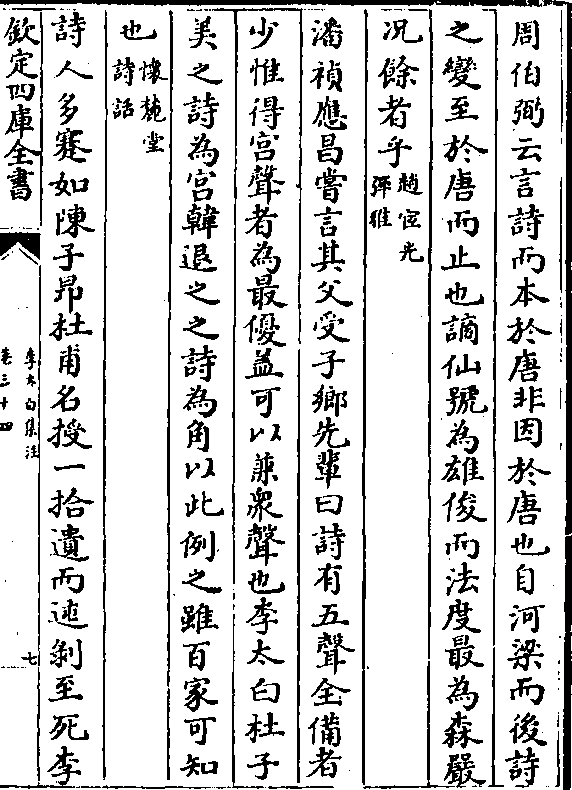 周伯弼云言詩而本於唐非因於唐也自河梁而後詩
之變至於唐而止也謫仙號為雄俊而法度最為森嚴
况餘者乎趙宧光
彈雅
潘禎應昌嘗言其父受子鄉先輩曰詩有五聲全備者
少惟得宮聲者為最優蓋可以兼衆聲也李太白杜子
美之詩為宮韓退之之詩為角以此例之雖百家可知
也懷麓堂
詩話
詩人多蹇如陳子昻杜甫名授一拾遺而迍剝至死李
欽定四庫全書
李太白集注
卷三十四
七